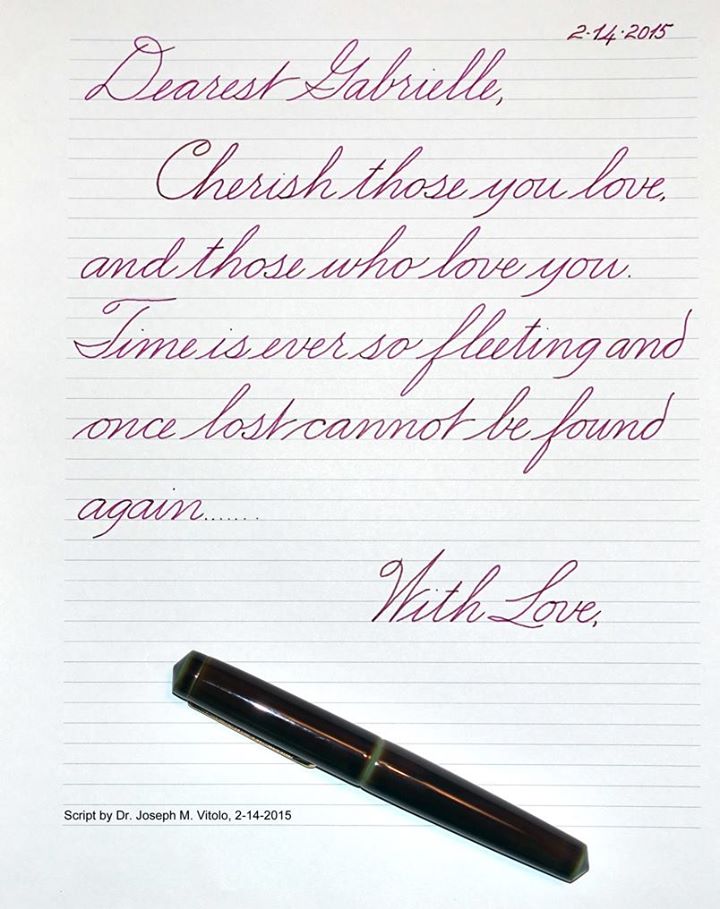 2·14·2015
Dearest Gabrielle,
Cherish those you love,
and those who love you.
Time is ever so fleeting and
once lost cannot be found
again......
With Love,
Script by Dr. Joseph M. Vitolo, 2-14-2015